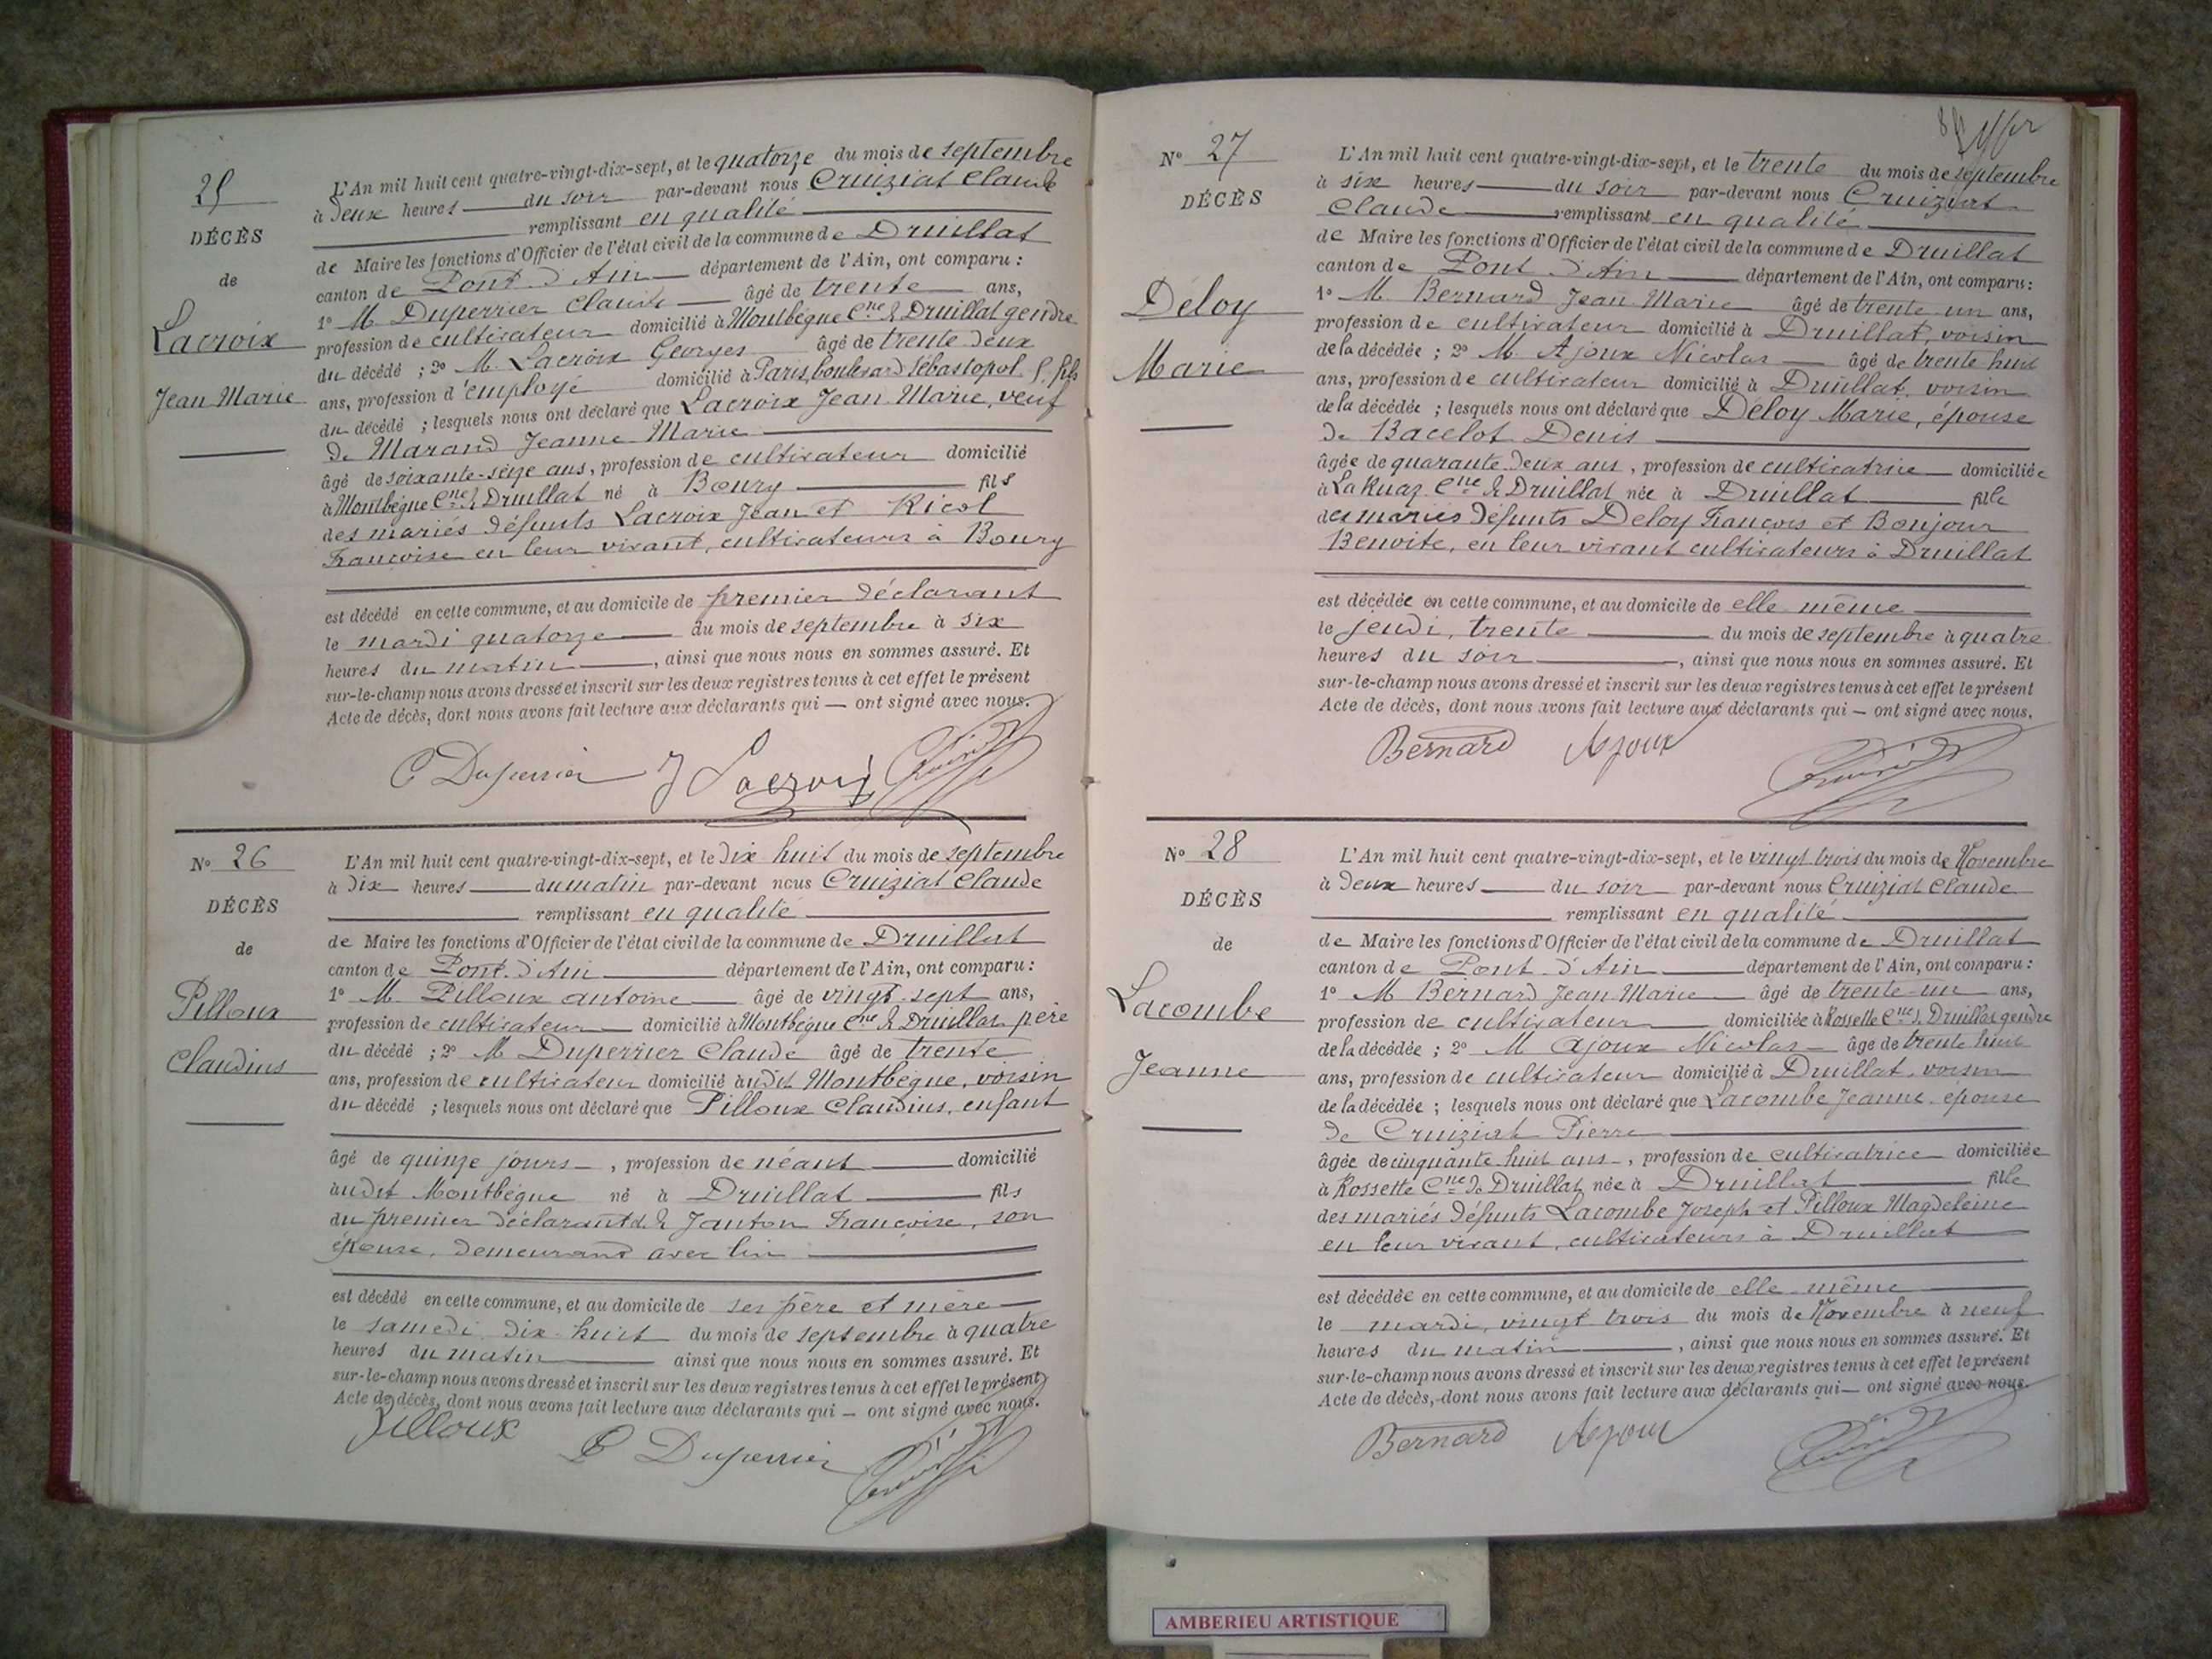 25
DÉCÈS
de
Lacroix
Jean Marie
L'An mil huit cent quatre-vingt-dix-sept, et le quatorze du mois de septembre
à deux heures du soir par-devant nous Cruiziat Claude
remplissant en qualité
de Maire les fonctions d'Officier de l'état civil de la commune de Druillat
canton de Pont d'Ain département de l'Ain, ont comparu :
1° M Duperrier Claude âgé de trente ans,
profession de cultivateur domicilié à Montbègue Cne de Druillat gendre
du décédé ; 2° M. Lacroix Georges âgé de trente deux
ans, profession d'employé domicilié à Paris, boulevard Sébastopol 5. fils
du décédé ; lesquels nous ont déclaré que Lacroix Jean Marie, veuf
de Marand Jeanne Marie
âgé de soixante-seize ans, profession de cultivateur domicilié
à Montbègue Cne de Druillat né à Bourg fils
des mariés défunts Lacroix Jean et Ricol
Françoise en leur vivant, cultivateurs à Bourg
est décédé en cette commune, et au domicile de premier déclarant
le mardi quatorze du mois de septembre à six
heures du matin, ainsi que nous nous en sommes assuré. Et
sur-le-champ nous avons dressé et inscrit sur les deux registres tenus à cet effet le présent
Acte de décès, dont nous avons fait lecture aux déclarants qui — ont signé avec nous.
C Duperrier J Lacroix
N° 26
DÉCÈS
de
Pilloux
Claudius
L'An mil huit cent quatre-vingt-dix-sept, et le dix huit du mois de septembre
à dix heures du matin par-devant nous Cruiziat Claude
remplissant en qualité
de Maire les fonctions d'Officier de l'état civil de la commune de Druillat
canton de Pont d'Ain département de l'Ain, ont comparu :
1° M. Pilloux antoine âgé de vingt-sept ans,
profession de cultivateur domicilié à Montbègue Cne de Druillat père
du décédé ; 2° M Duperrier Claude âgé de trente
ans, profession de cultivateur domicilié audit Montbègue, voisin
du décédé ; lesquels nous ont déclaré que Pilloux Claudius, enfant
âgé de quinze jours, profession de néant domicilié
audit Montbègue né à Druillat fils
du premier déclarant et de Janton Françoise, son
épouse, demeurant avec lui
est décédé en cette commune, et au domicile de ses père et mère
le samedi dix-huit du mois de septembre à quatre
heures du matin ainsi que nous nous en sommes assuré. Et
sur-le-champ nous avons dressé et inscrit sur les deux registres tenus à cet effet le présent
Acte de décès, dont nous avons fait lecture aux déclarants qui — ont signé avec nous.
Pilloux C Duperrier
N° 27
DÉCÈS
Deloy
Marie
L'An mil huit cent quatre-vingt-dix-sept, et le trente du mois de septembre
à six heures du soir par-devant nous Cruiziat
Claude remplissant en qualité
de Maire les fonctions d'Officier de l'état civil de la commune de Druillat
canton de Pont d'Ain département de l'Ain, ont comparu :
1° M. Bernard Jean Marie âgé de trente-un ans,
profession de cultivateur domicilié à Druillat, voisin
de la décédée ; 2° M. Ajoux Nicolas âgé de trente huit
ans, profession de cultivateur domicilié à Druillat, voisin
de la décédée ; lesquels nous ont déclaré que Deloy Marie, épouse
de Bacelot Denis
âgée de quarante-deux ans, profession de cultivatrice domiciliée
à La Ruaz Cne de Druillat née à Druillat fille
des mariés défunts Deloy François et Bonjour
Benoite, en leur vivant cultivateurs à Druillat
est décédée en cette commune, et au domicile de elle même
le jeudi, trente du mois de septembre à quatre
heures du soir, ainsi que nous nous en sommes assuré. Et
sur-le-champ nous avons dressé et inscrit sur les deux registres tenus à cet effet le présent
Acte de décès, dont nous avons fait lecture aux déclarants qui — ont signé avec nous.
Bernard Ajoux
N° 28
DÉCÈS
de
Lacombe
Jeanne
L'An mil huit cent quatre-vingt-dix-sept, et le vingt trois du mois de Novembre
à deux heures du soir par-devant nous Cruiziat Claude
remplissant en qualité
de Maire les fonctions d'Officier de l'état civil de la commune de Druillat
canton de Pont d'Ain département de l'Ain, ont comparu :
1° M Bernard Jean Marie âgé de trente-un ans,
profession de cultivateur domiciliée à Rossette Cne de Druillat gendre
de la décédée ; 2° M Ajoux Nicolas âge de trente huit
ans, profession de cultivateur domicilié à Druillat, voisin
de la décédée ; lesquels nous ont déclaré que Lacombe Jeanne, épouse
de Cruiziat Pierre
âgée de cinquante huit ans, profession de cultivatrice domiciliée
à Rossette Cne de Druillat née à Druillat fille
des mariés défunts Lacombe Joseph et Pilloux Magdeleine
en leur vivant, cultivateurs à Druillat
est décédée en cette commune, et au domicile de elle même
le mardi, vingt trois du mois de Novembre à neuf
heures du matin, ainsi que nous nous en sommes assuré. Et
sur-le-champ nous avons dressé et inscrit sur les deux registres tenus à cet effet le présent
Acte de décès, dont nous avons fait lecture aux déclarants qui — ont signé avec nous.
Bernard Ajoux
AMBERIEU ARTISTIQUE